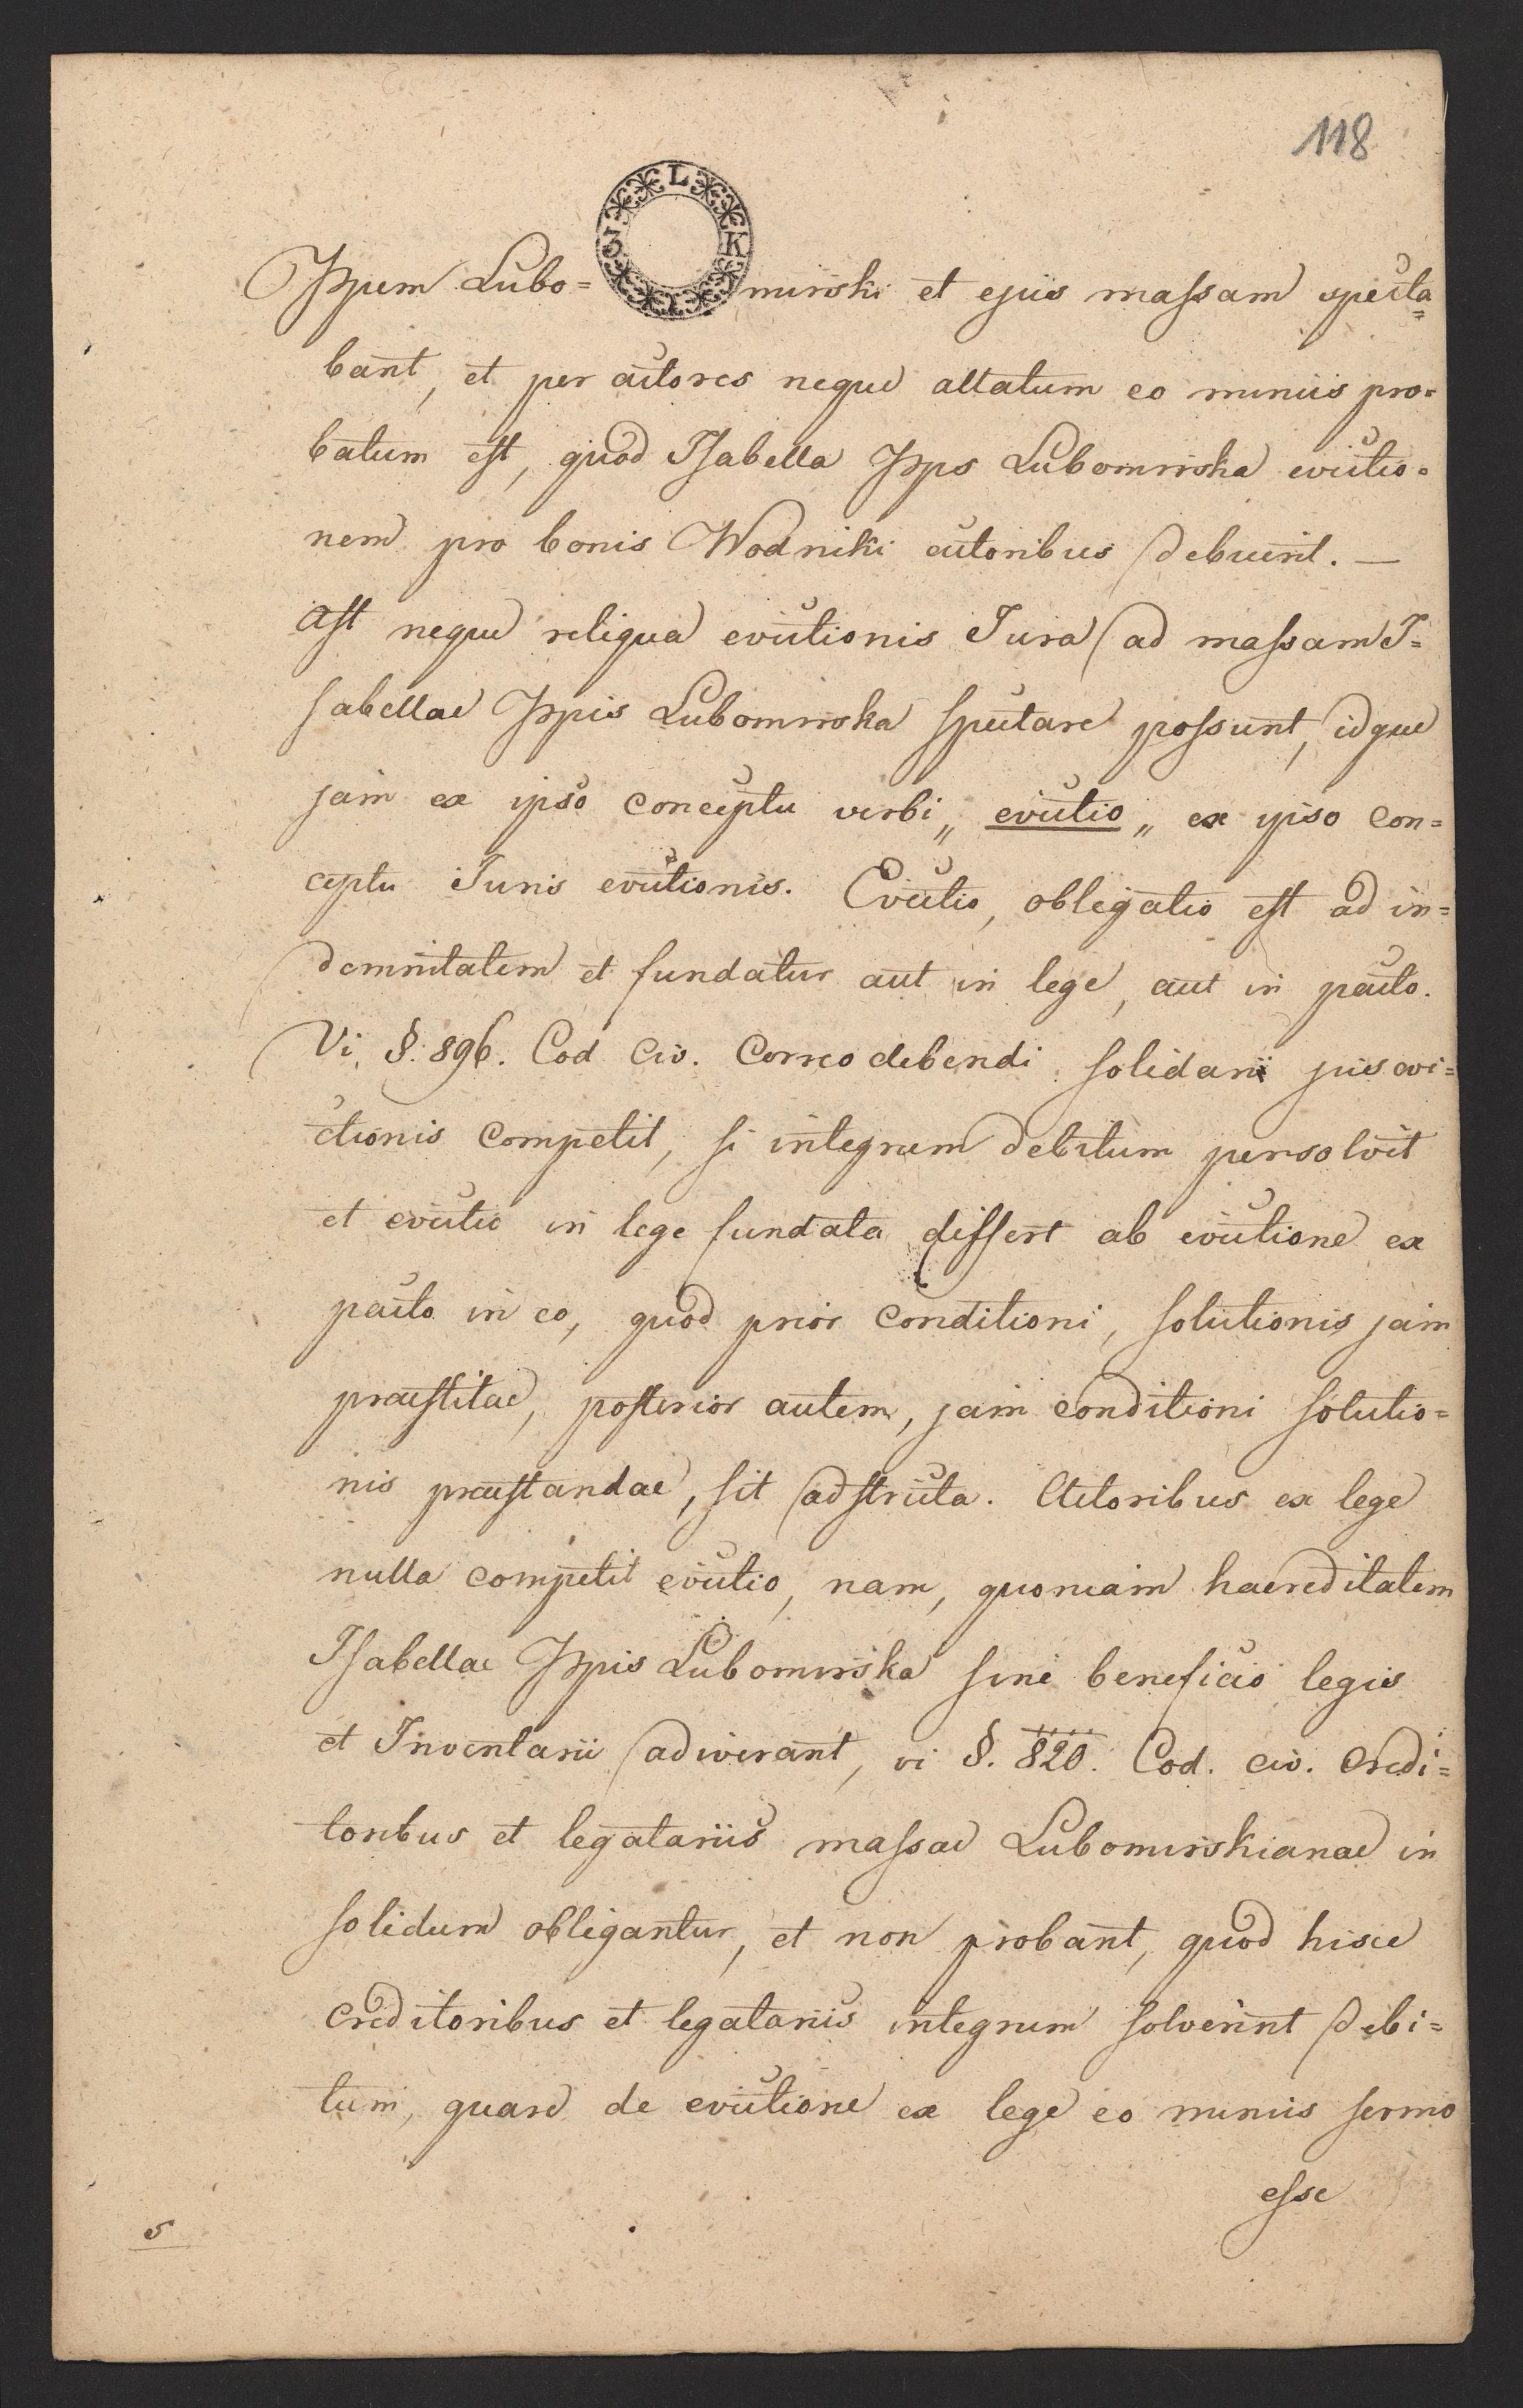 118
L K I 3
Ippem Lubo=mirski et ejus massam specta=
bant, et per actores neque allatum eo minus pro=
batum est, quod Isabella Ipps Lubomirska evictio=
nem pro bonis Wodniki actoribus debuerit. —
Ast neque reliqua evictionis Jura ad massam I=
sabellae Ippis Lubomirska spectare possunt, idque
jam ex ipso conceptu verbi „ evictio „ ex ipso con=
ceptu Juris evictionis. Evictio, obligatio est ad in=
demnitatem et fundatur aut in lege, aut in pacto.
Vi §. 896. Cod Civ. Correo debendi solidarii jus evi=
ctionis competit, si integrum debitum persolvit
et evictio in lege fundata differt ab evictione ex
pacto in eo, quod prior conditioni, solutionis jam
praestitae, posterior autem, jam conditioni solutio=
nis praestandae, sit adstricta. Actoribus ex lege
nulla competit evictio, nam, quoniam haereditatem
Isabellae Ippis Lubomirska sine beneficio legis
et Inventarii adiverant, vi §. 820. Cod. civ. Credi=
toribus et legatariis massae Lubomirskianae in
solidum obligantur, et non probant, quod hisce
creditoribus et legatariis integrum solverint debi=
tum, quare de evictione ex lege eo minus sermo
esse
5